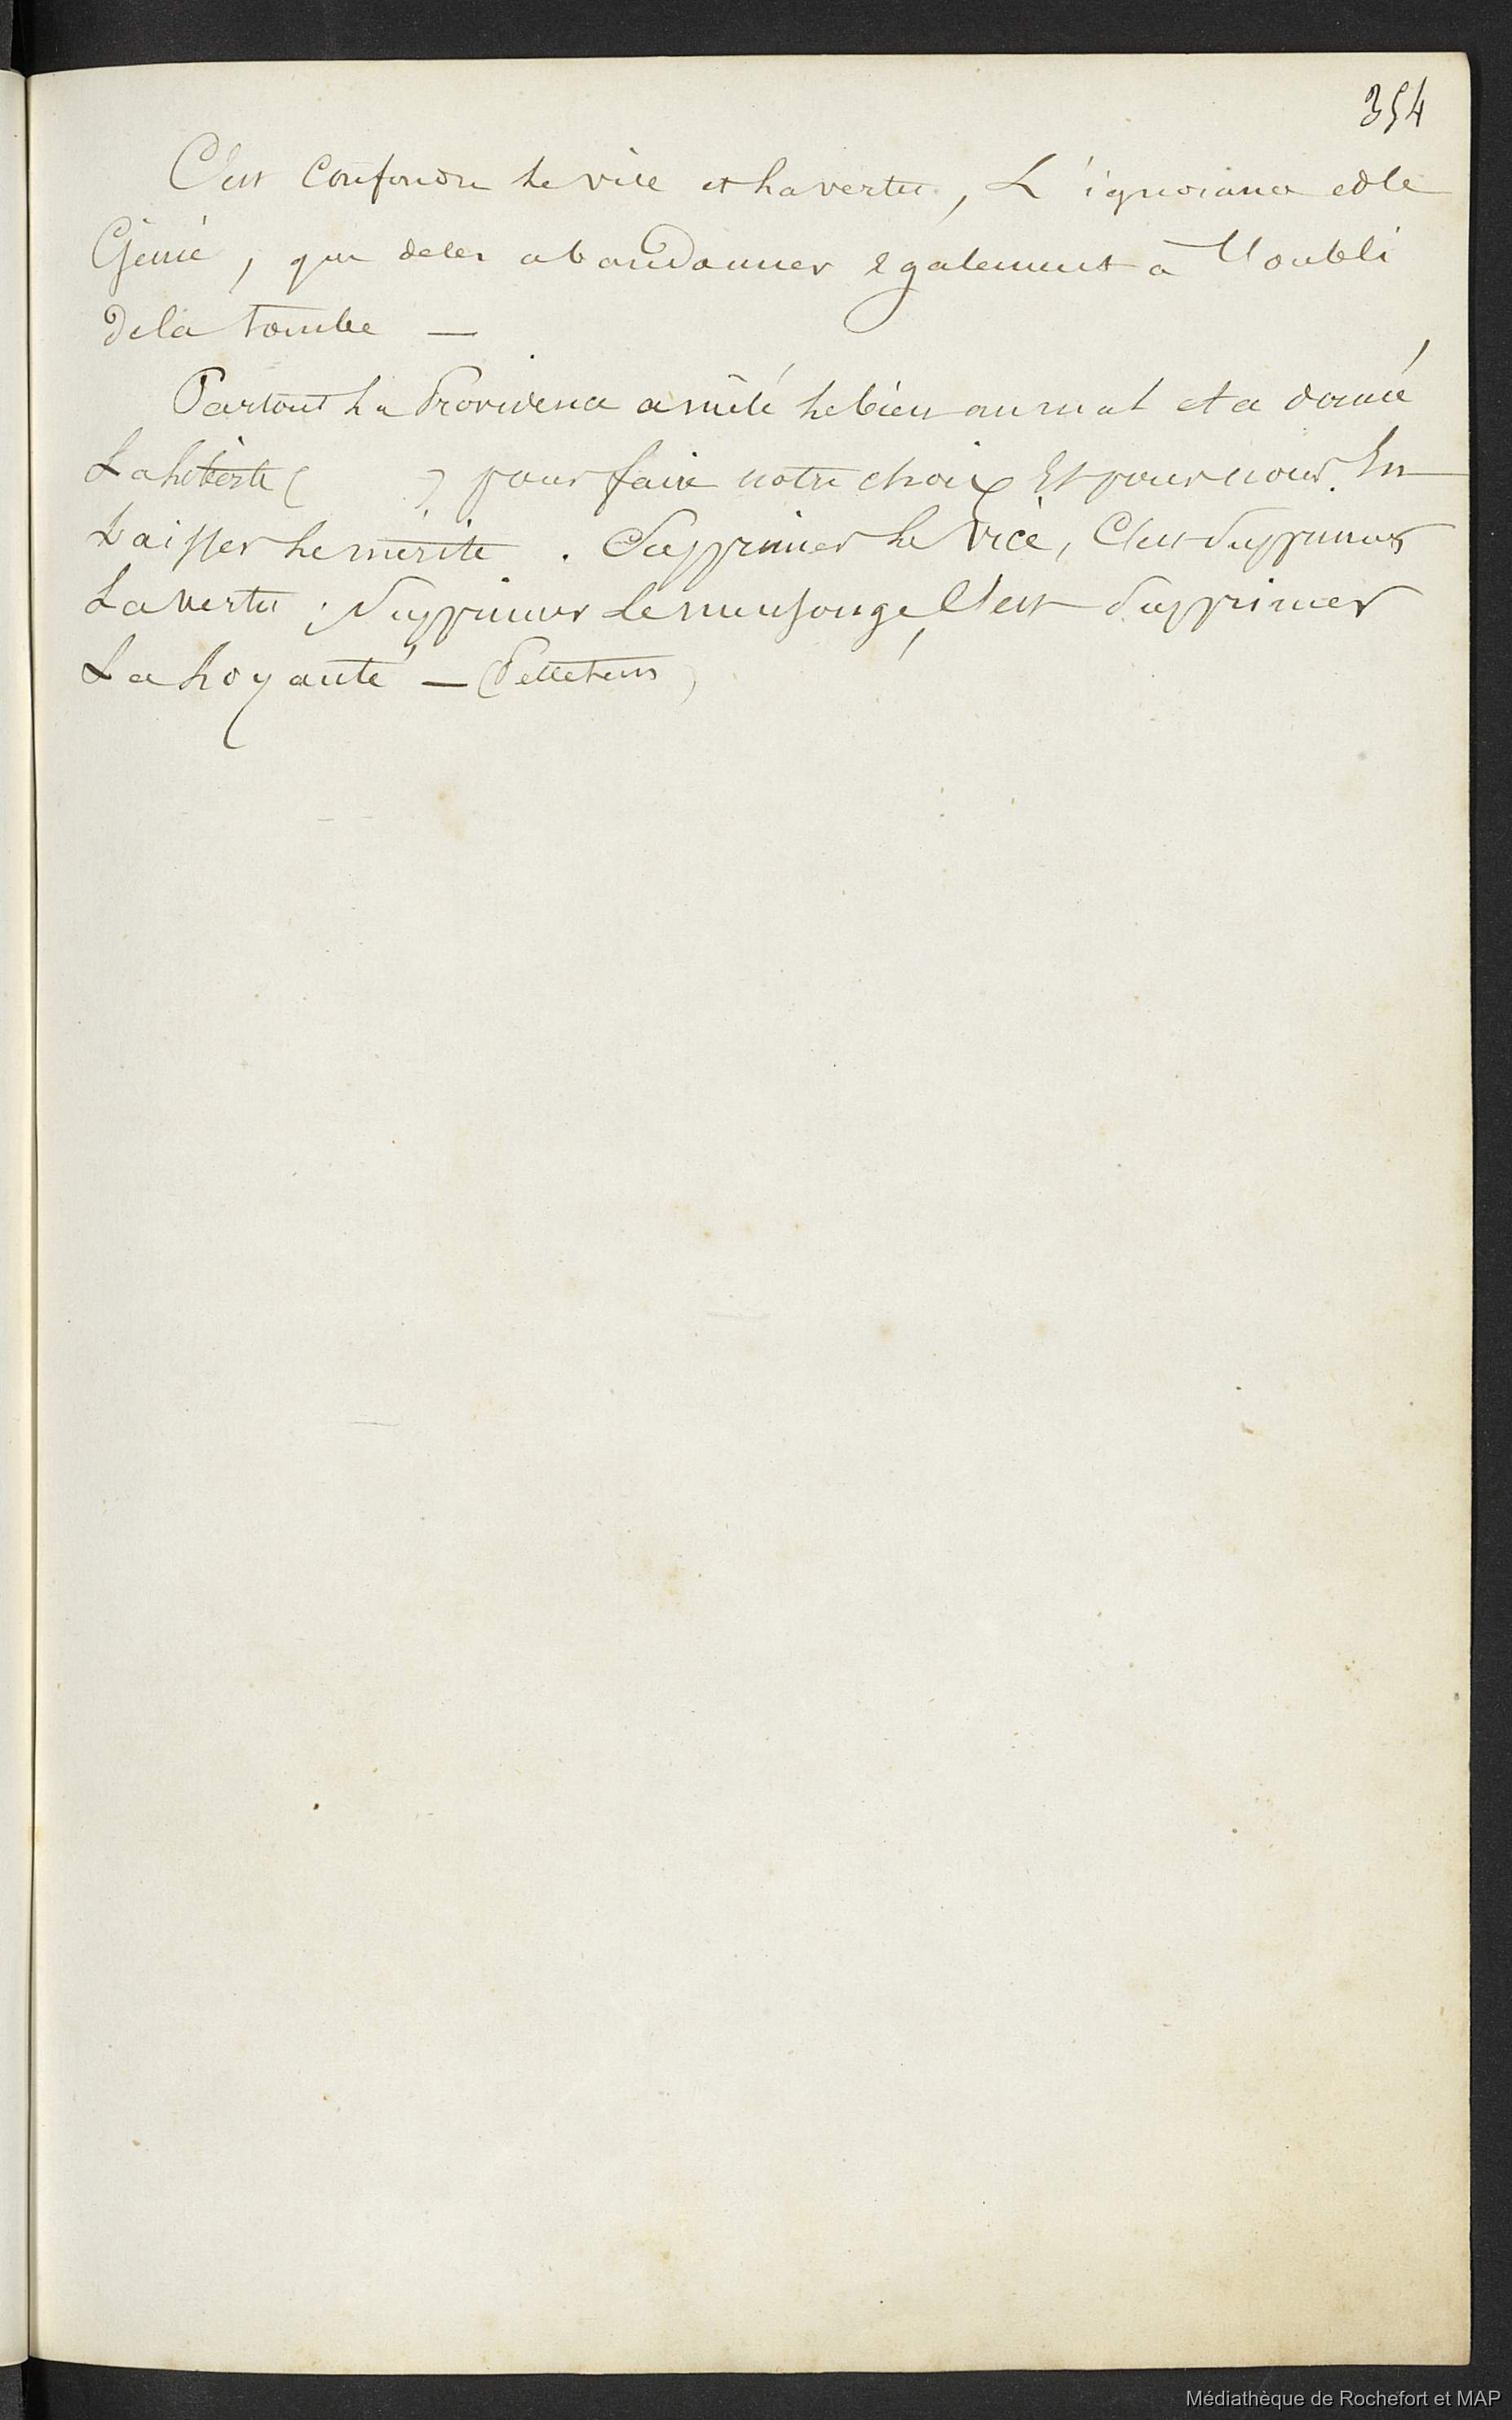 354
C'est confondre le vice et la vertu, L'ignorance et le
Génie, que de les abandonner également à l'oubli
de la tombe —
Partout la Providence a mêlé le bien au mal et a donné
La liberté ( ) pour faire notre choix Et pour nous En
Laisser le mérite. Supprimer le vice, C'est supprimer
La vertu; supprimer Le mensonge, C'est supprimer
La Loyauté — (Pelletan)
Médiathèque de Rochefort et MAP